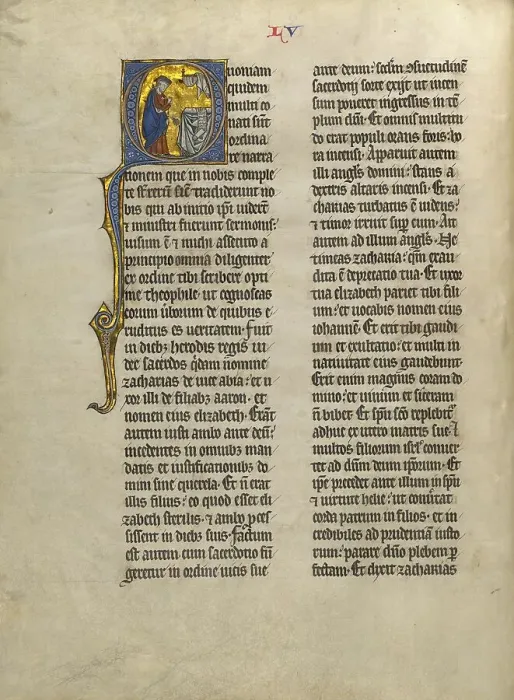 LV
uoniam
quidem
multi co
nati sūt
ordina
re narra
tionem que in nobis comple
te sūt rerū sicut tradiderunt no
bis qui ab initio ipi uiderūt
⁊ ministri fuerunt sermonis
uisum ē ⁊ michi assecuto a
principio omnia diligenter
ex ordine tibi scribere opti
me theophile· ut cognoscas
eorum uborum de quibus e
ruditus es ueritatem· Fuit
in diebȝ herodis regis iu
dee sacerdos qdam nomine
zacharias de uice abia· et u
xor illi de filiabȝ aaron· et
nomen eius elizabeth· Erāt
autem iusti ambo ante deū
incedentes in omnibȝ man
datis et iustificationibȝ do
mini sine querela· Et ñ erat
illis filius· eo quod esset eli
zabeth sterilis· ⁊ ambo pces
sissent in diebȝ suis· Factum
est autem cum sacerdotio fū
geretur in ordine uicis sue
ante deum· scdm ɔsuetudinē
sacerdotij sorte exijt ut incen
sum poneret ingressus in tē
plum dñi· Et omnis multitu
do erat populi orans foris ho
ra incensi· Apparuit autem
illi angls domini· stans a
dextris altaris incensi· Et za
charias turbatus ē uidens
⁊ timor irruit sup eum· Ait
autem ad illum angls· Ne
timeas zacharia· qm̄ exau
dita ē deprecatio tua· Et uxor
tua elizabeth pariet tibi fili
um· et uocabis nomen eius
iohannē· Et erit tibi gaudi
um et exultatio· et multi in
natiuitate eius gaudebunt·
Erit enim magnus coram do
mino· et uinum et siceram
ñ bibet· Et spū scō replebitᷣ
adhuc ex utero matris sue· ⁊
multos filiorum isrl conuer
tet ad dñm deum ipsorum· Et
ipe precedet ante illum in spū
⁊ uirtute helie· ut conutat
corda patrum in filios· et in
credibiles ad prudentiā iusto
rum· parare dño plebem p
fectam· Et dixit zacharias